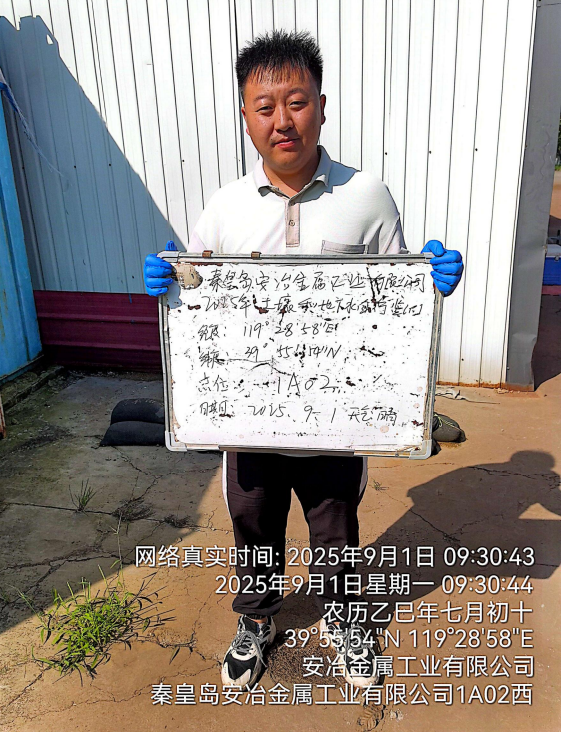 秦皇岛安冶金属工业有限公司
2025年土壤和地下水自行监测
经度: 119°28'58"E
纬度: 39°55'54"N
点位: 1A02
日期: 2025.9.1 天气:晴
网络真实时间: 2025年9月1日 09:30:43
2025年9月1日星期一 09:30:44
农历乙巳年七月初十
39°55'54"N 119°28'58"E
安冶金属工业有限公司
秦皇岛安冶金属工业有限公司1A02西